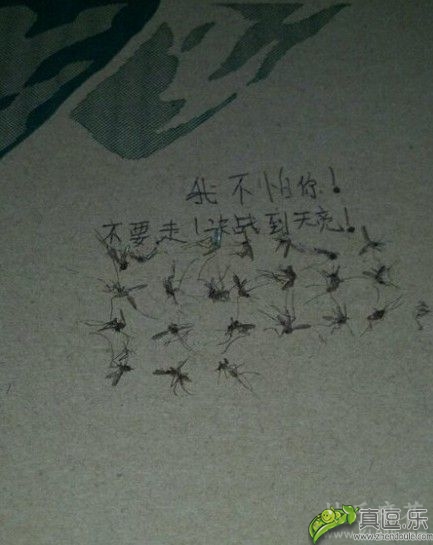 我不怕你！
不要走！决战到天亮！
真逗乐
www.zhendoule.com